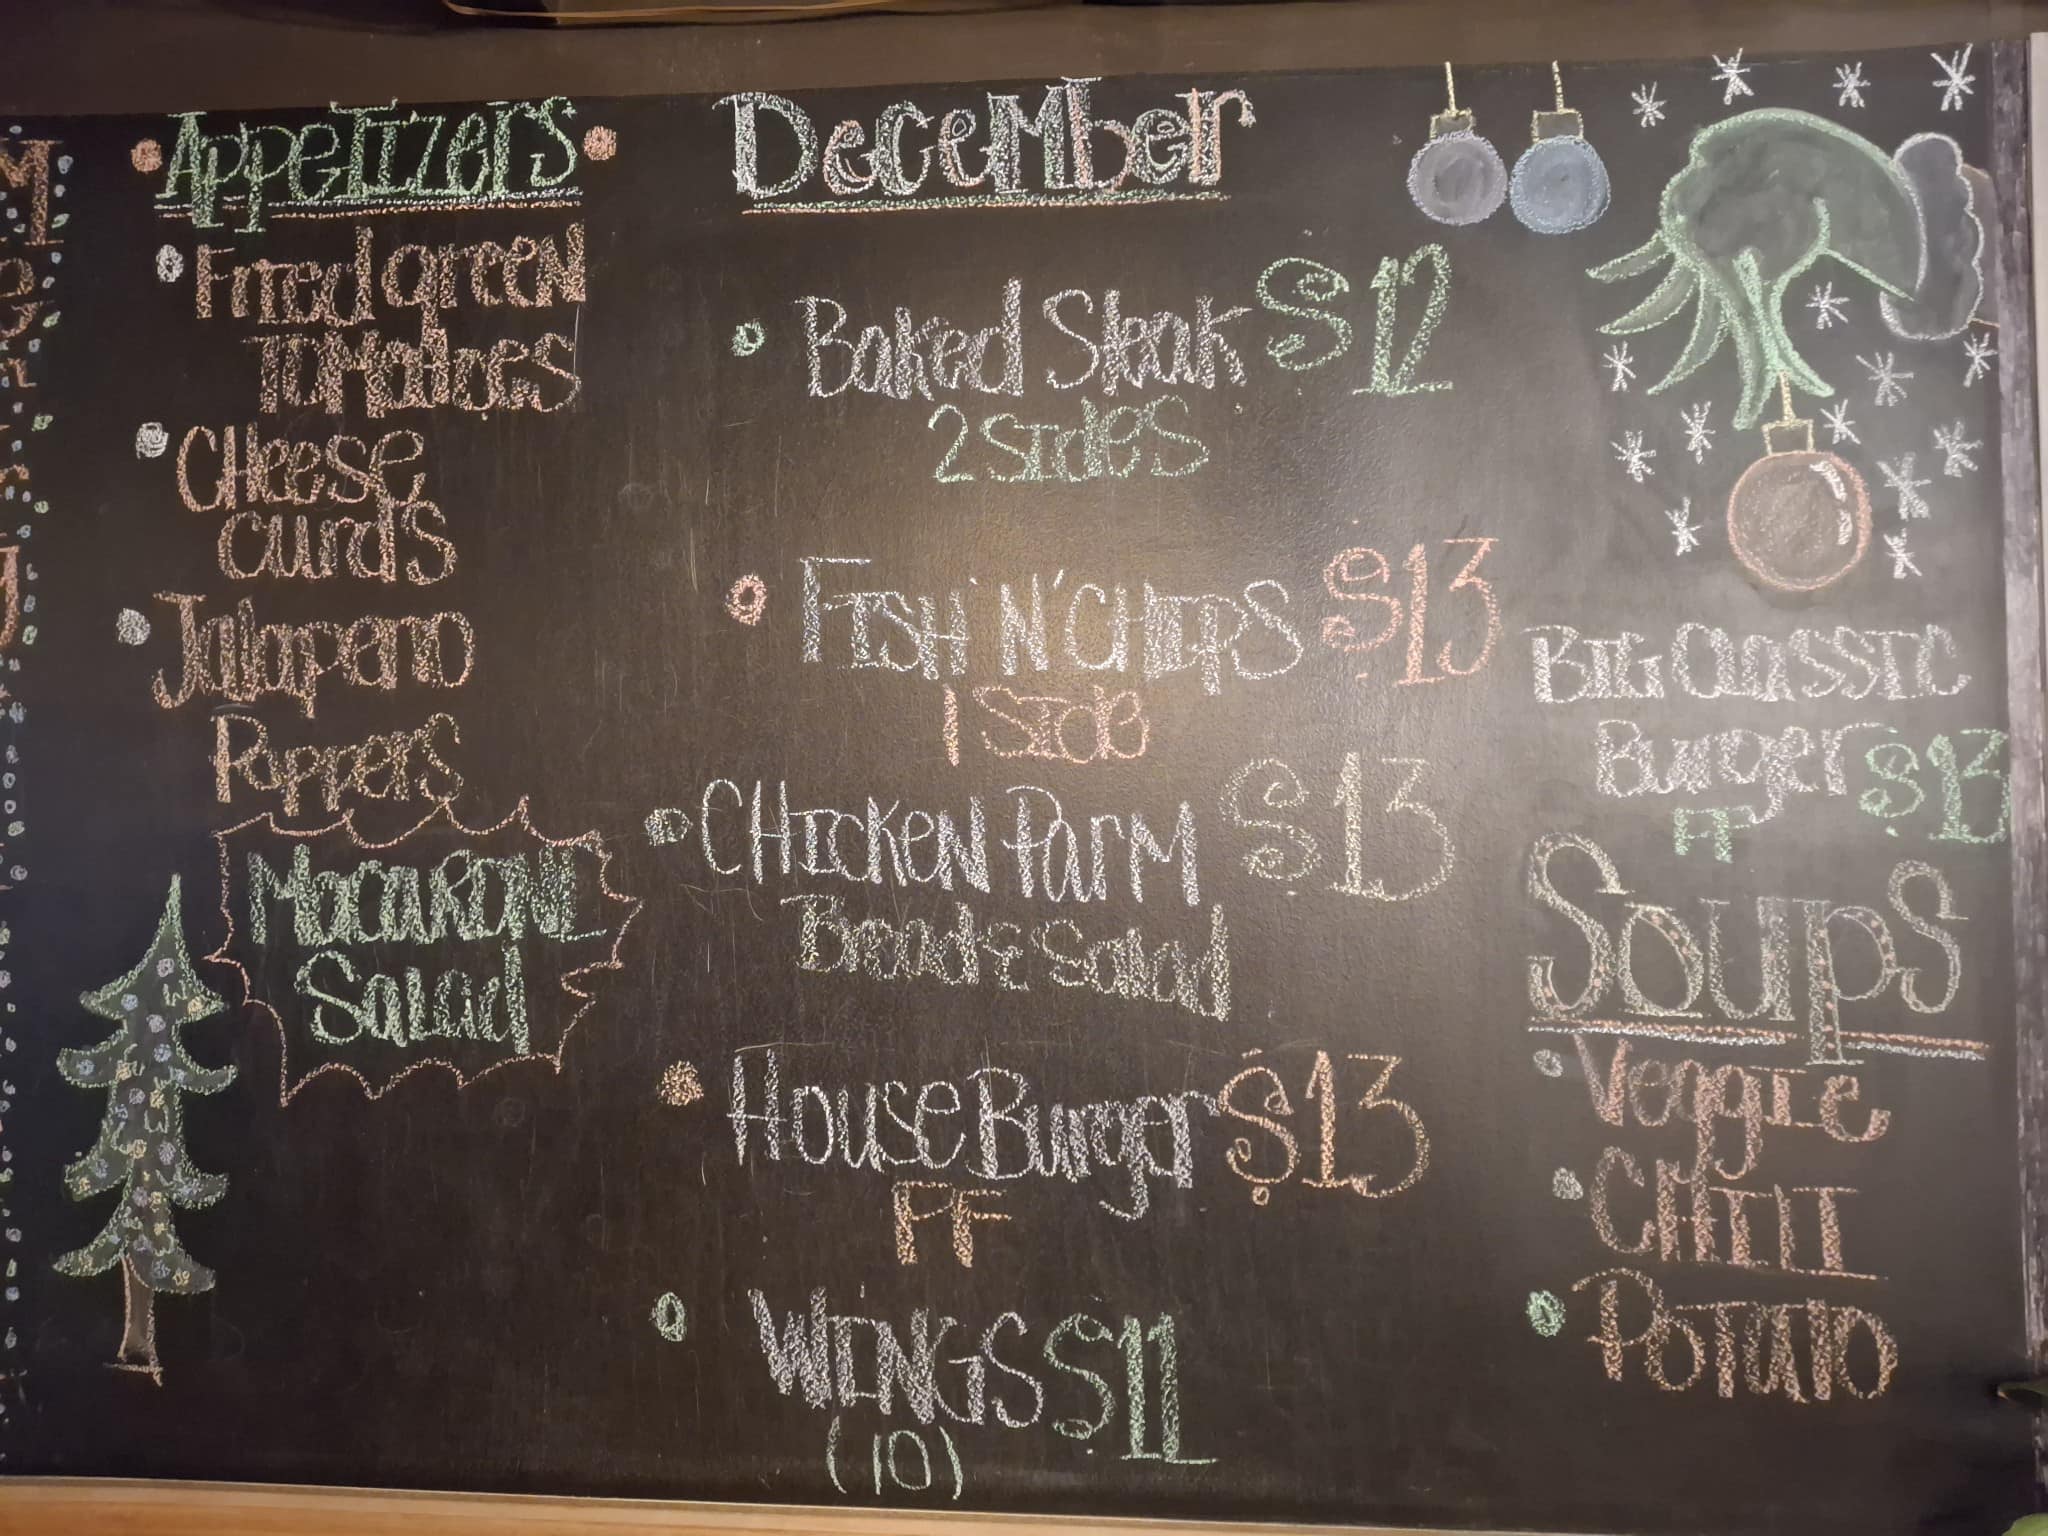 Appetizers
Fried green
Tomatoes
Cheese
Curds
Jalapeno
Poppers
Macaroni
Salad
December
Baked Steak $12
2 Sides
Fish 'N' Chips $13
1 Side
Chicken Parm $13
Bread & Salad
House Burger $13
FF
Wings $11
(10)
Big Classic
Burger $13
FF
Soups
Veggie
Chili
Potato